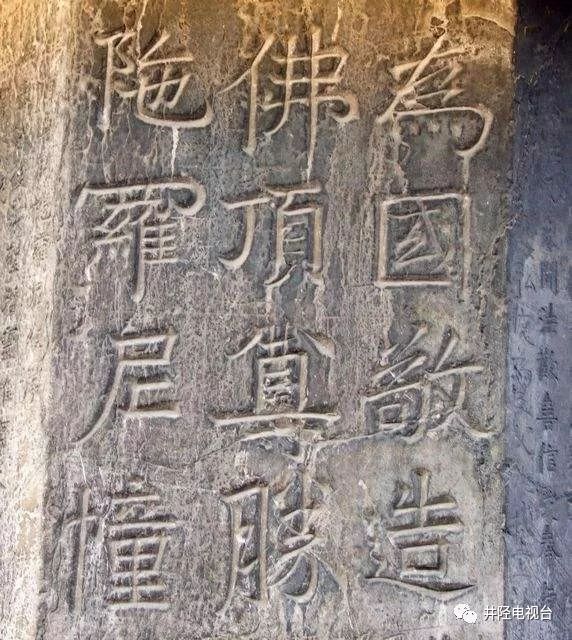 為國敬造
佛頂尊勝
陁羅尼幢
井陉电视台